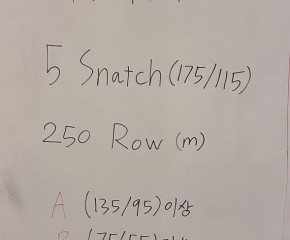 5 Snatch (175/115)
250 Row (m)
A (135/95)이상
B (75/55)